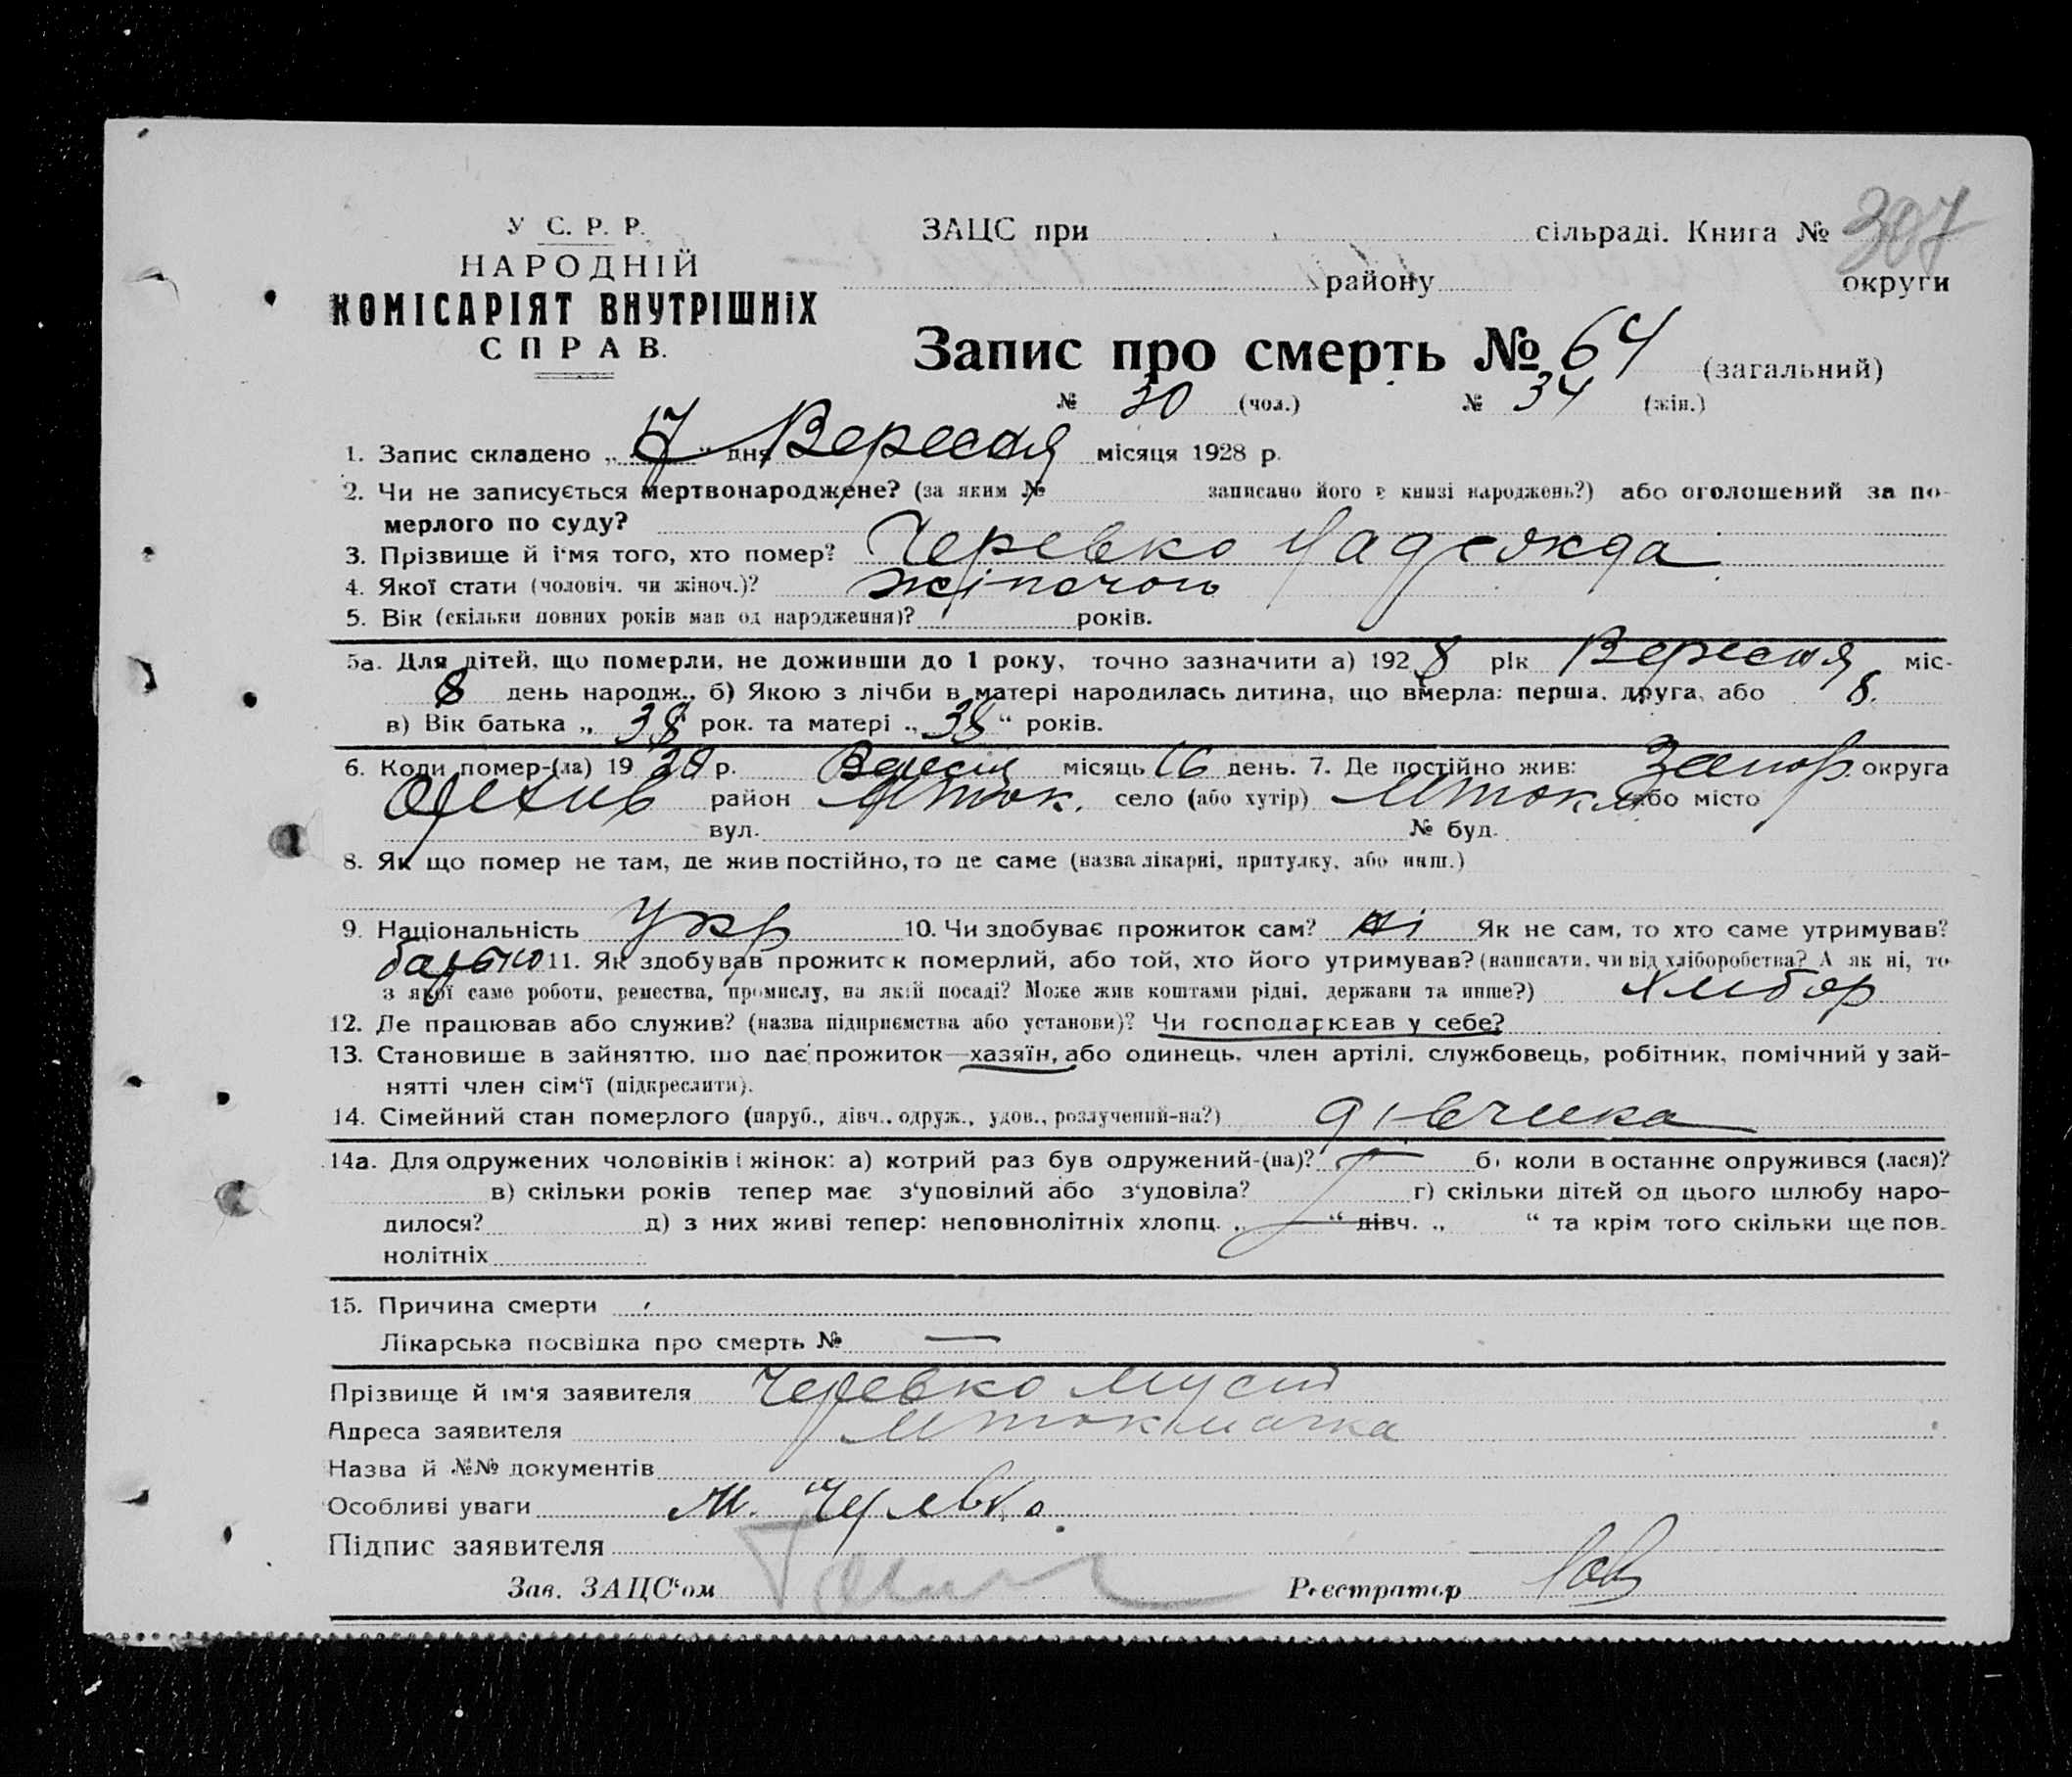 У С. Р. Р.
НАРОДНІЙ
КОМІСАРІЯТ ВНУТРІШНІХ
СПРАВ.
ЗАЦС при сільраді. Книга № 307
району округи
Запис про смерть № 64 (загальний)
№ 30 (чол.) № 34 (жін.)
1. Запис складено „17“ дня Вересня місяця 1928 р.
2. Чи не записується мертвонароджене? (за яким № записано його в книзі народжень?) або оголошений за по-
мерлого по суду?
3. Прізвище й ім'я того, хто помер? Черевко Надежда
4. Якої стати (чоловіч. чи жіноч.)? жіночою
5. Вік (скільки повних років мав од народження)? років.
5а. Для дітей, що померли, не доживши до 1 року, точно зазначити а) 1928 рік Вересня міс-
8 день народж., б) Якою з лічби в матері народилась дитина, що вмерла: перша, друга, або 8.
в) Вік батька „38“ рок. та матері „38“ років.
6. Коли помер-(ла) 1928 р. Вересня місяць 16 день. 7. Де постійно жив: Запор. округа
Оріхів район Мток. село (або хутір) Мтокм або місто
вул. № буд.
8. Як що помер не там, де жив постійно, то де саме (назва лікарні, притулку, або инш.)
9. Національність Укр 10. Чи здобував прожиток сам? ні Як не сам, то хто саме утримував?
батько 11. Як здобував прожиток померлий, або той, хто його утримував? (написати, чи від хліборобства? А як ні, то
з якої саме роботи, ремества, промислу, на якій посаді? Може жив коштами рідні, держави та инше?) Хлібор
12. Де працював або служив? (назва підприємства або установи)? Чи господарював у себе?
13. Становище в зайняттю, що дає прожиток—хазяїн, або одинець, член артілі, службовець, робітник, помічний у зай-
нятті член сім'ї (підкреслити).
14. Сімейний стан померлого (паруб., дівч., одруж., удов., розлучений-на?) дівчика
14а. Для одружених чоловіків і жінок: а) котрий раз був одружений-(на)? — б) коли в останнє одружився (лася)?
в) скільки років тепер має з'уповілий або з'удовіла? г) скільки дітей од цього шлюбу наро-
дилося? д) з них живі тепер: неповнолітніх хлопц. „—“ дівч. „ “ та крім того скільки ще пов-
нолітніх
15. Причина смерти
Лікарська посвідка про смерть № —
Прізвище й ім'я заявителя Черевко Мусій
Адреса заявителя Мтокмачка
Назва й №№ документів
Особливі уваги М. Черевко.
Підпис заявителя
Зав. ЗАЦС'ом Реєстратор